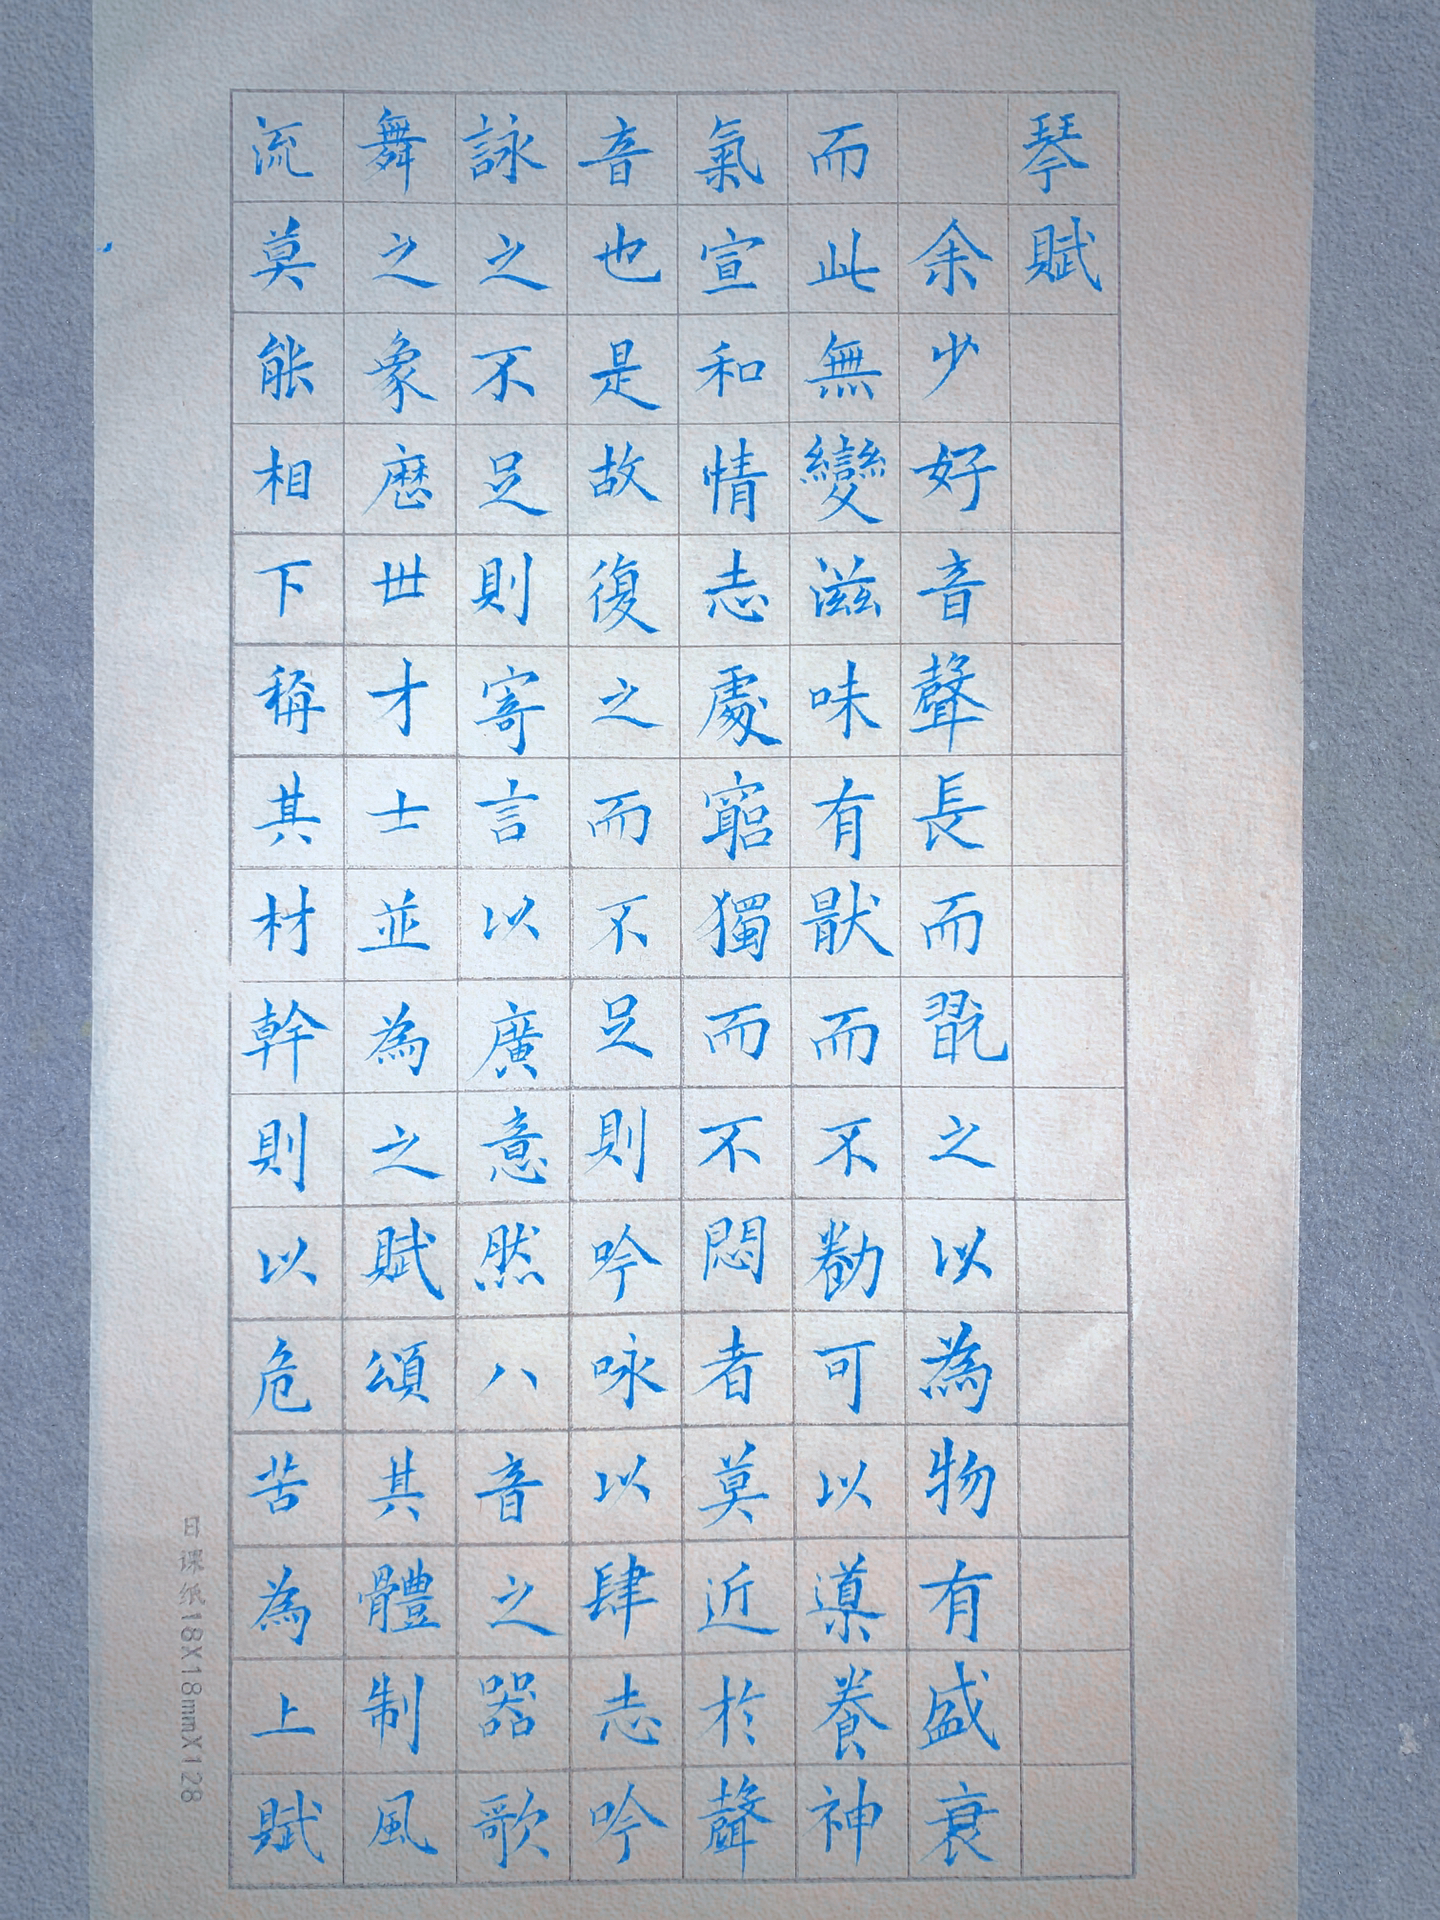 琴賦
余少好音聲長而翫之以為物有盛衰
而此無變滋味有猒而不勌可以導養神
氣宣和情志處窮獨而不悶者莫近於聲
音也是故復之而不足則吟咏以肆志吟
詠之不足則寄言以廣意然八音之器歌
舞之象歷世才士並為之賦頌其體制風
流莫能相下稱其材幹則以危苦為上賦
日课纸18X18mmX128